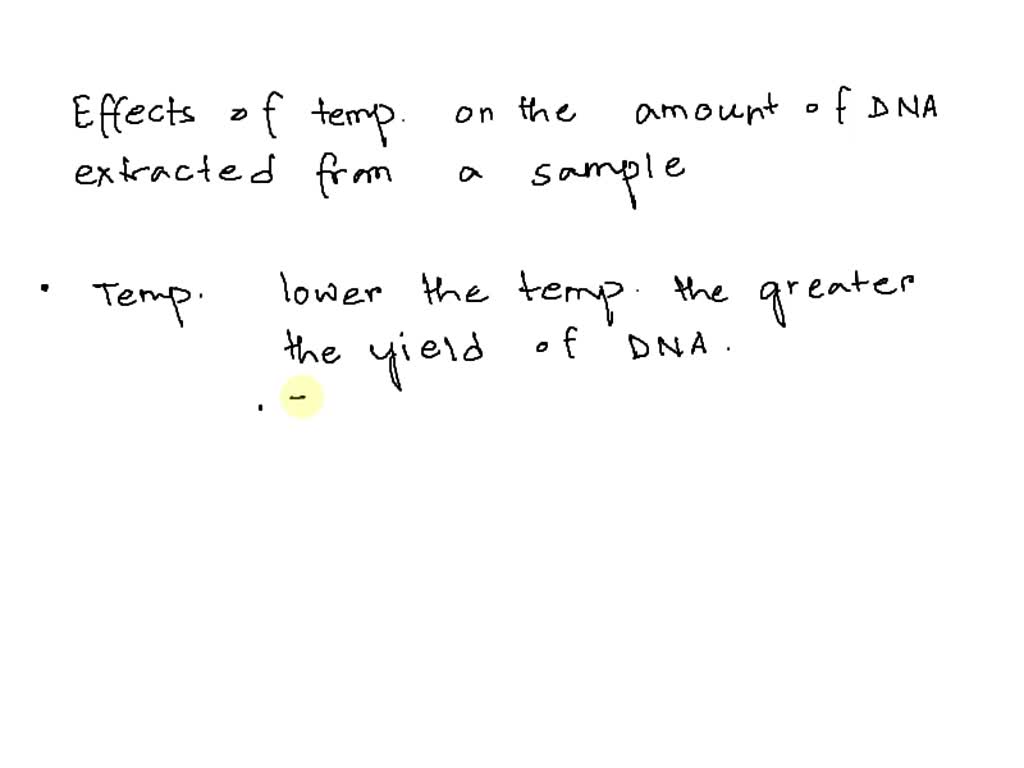 Effects of temp. on the amount of DNA
extracted from a sample
• Temp. lower the temp. the greater
the yield of DNA.
. -